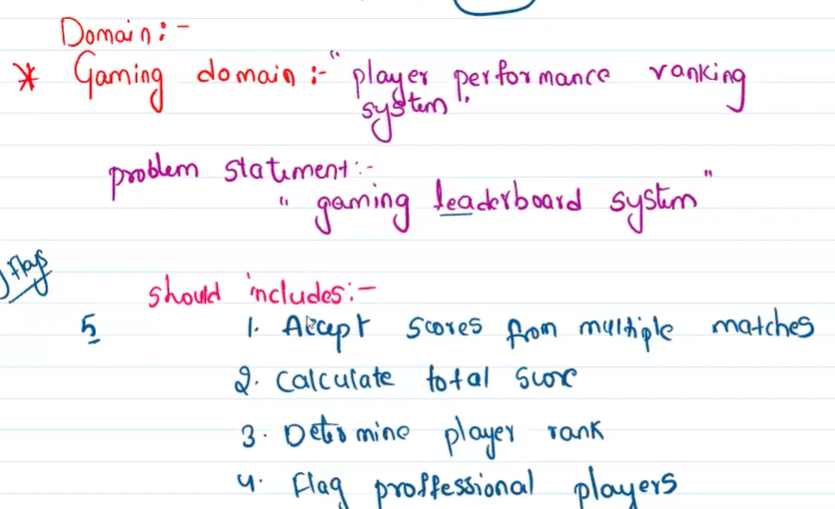 Domain:-
* Gaming domain:- "player performance ranking
system".
problem statement:-
" gaming leaderboard system"
flag
should includes:-
5
1. Accept scores from multiple matches
2. Calculate total score
3. Determine player rank
4. Flag proffessional players